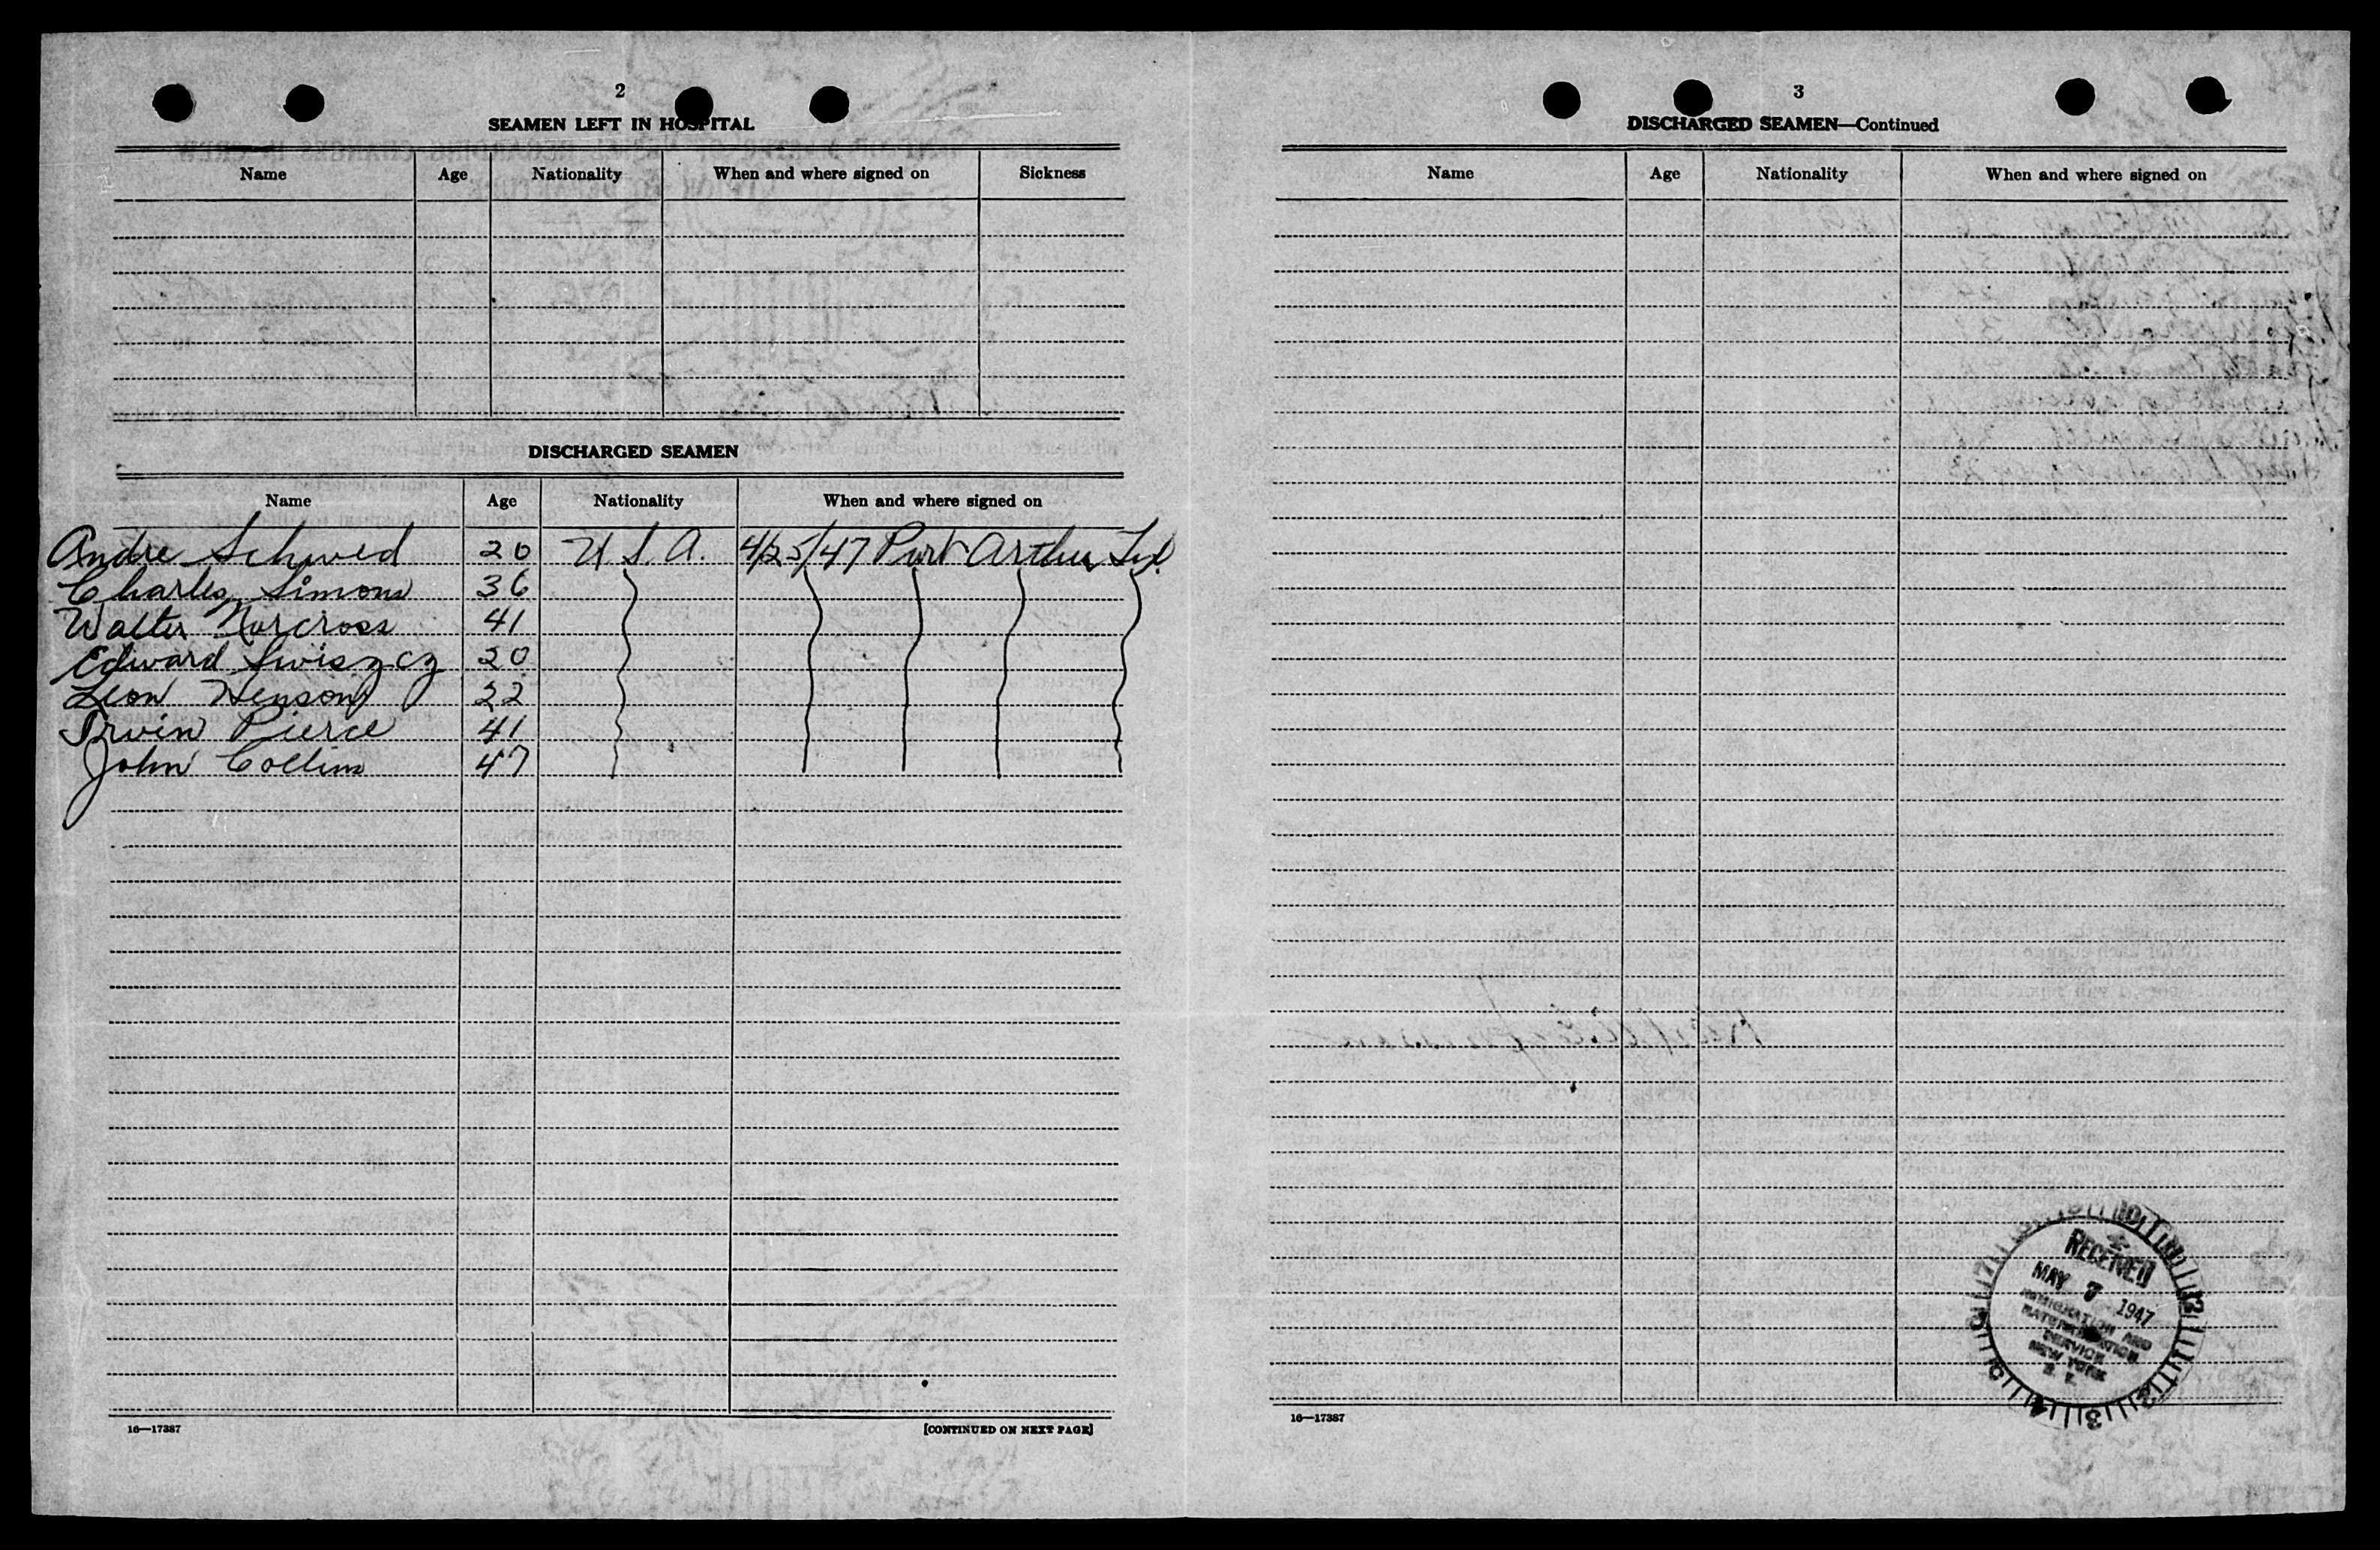 2
SEAMEN LEFT IN HOSPITAL
Name Age Nationality When and where signed on Sickness
DISCHARGED SEAMEN
Name Age Nationality When and where signed on
Andre Schwed 20 U.S.A. 4/25/47 Port Arthur
Charles Simons 36
Walter Norcross 41
Edward Swiszcz 20
Leon Henson 22
Irvin Pierce 41
John Collins 47
16—17387 [CONTINUED ON NEXT PAGE]
3
DISCHARGED SEAMEN—Continued
Name Age Nationality When and where signed on
RECEIVED
MAY 7 1947
IMMIGRATION AND
NATURALIZATION
SERVICE
NEW YORK
N. Y.
16—17387